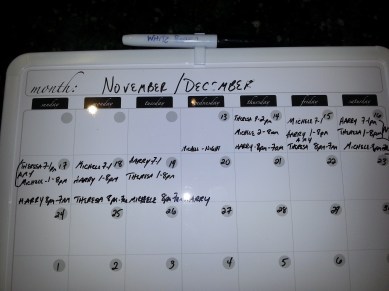 month: NOVEMBER / DECEMBER
sunday monday tuesday wednesday thursday friday saturday
13 14 15 16
THERESA 8-2pm MICHELLE 7-1 HARRY 7-1pm
MICHELE 2-8pm HARRY 1-8pm THERESA 1-8pm
MICHELE-NIGHT HARRY 8pm-7am THERESA 8pm-7am MICHELE 8pm-7am
17 18 19 20 21 22 23
THERESA 7-1pm MICHELE 7-1 HARRY 7-1
MICHELE 1-8pm HARRY 1-8pm THERESA 1-8pm
HARRY 8pm-7am THERESA 8pm-7am MICHELE 8pm-7am HARRY
24 25 26 27 28 29 30
1 2 3 4 5 6